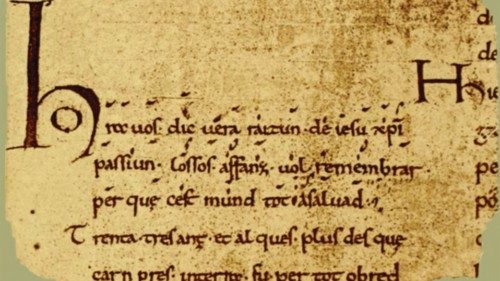 Hora vos dic vera raizun · de iesu xp̄i
passiun · los sos affanz · vol remembrar
per que cest mund tot a salvad ·
Trenta tres anz · et al ques plus des que
carn pres · in terra · fu per tot obred
de
H
pe